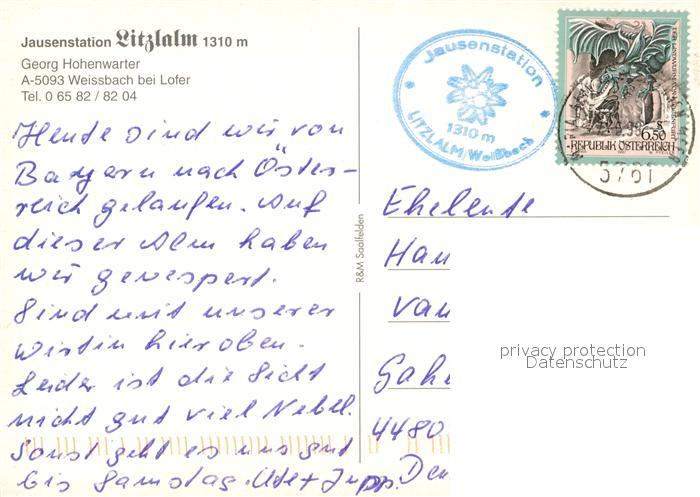 Jausenstation Litzlalm 1310 m
Georg Hohenwarter
A-5093 Weissbach bei Lofer
Tel. 0 65 82 / 82 04
Heute sind wir von
Bayern nach Öster-
reich gelaufen. Auf
dieser Alm haben
wir gevespert.
Sind mit unserer
Wirtin hier oben.
Leider ist die Sicht
nicht gut viel Nebel.
Sonst geht es uns gut
bis Samstag. Ute + Jupp.
R&M Saalfelden
Jausenstation
1310 m
LITZLALM/Weißbach
6.50
REPUBLIK ÖSTERREICH
5761
Eheleute
Han
van
Gahe
4480
Den
privacy protection
Datenschutz